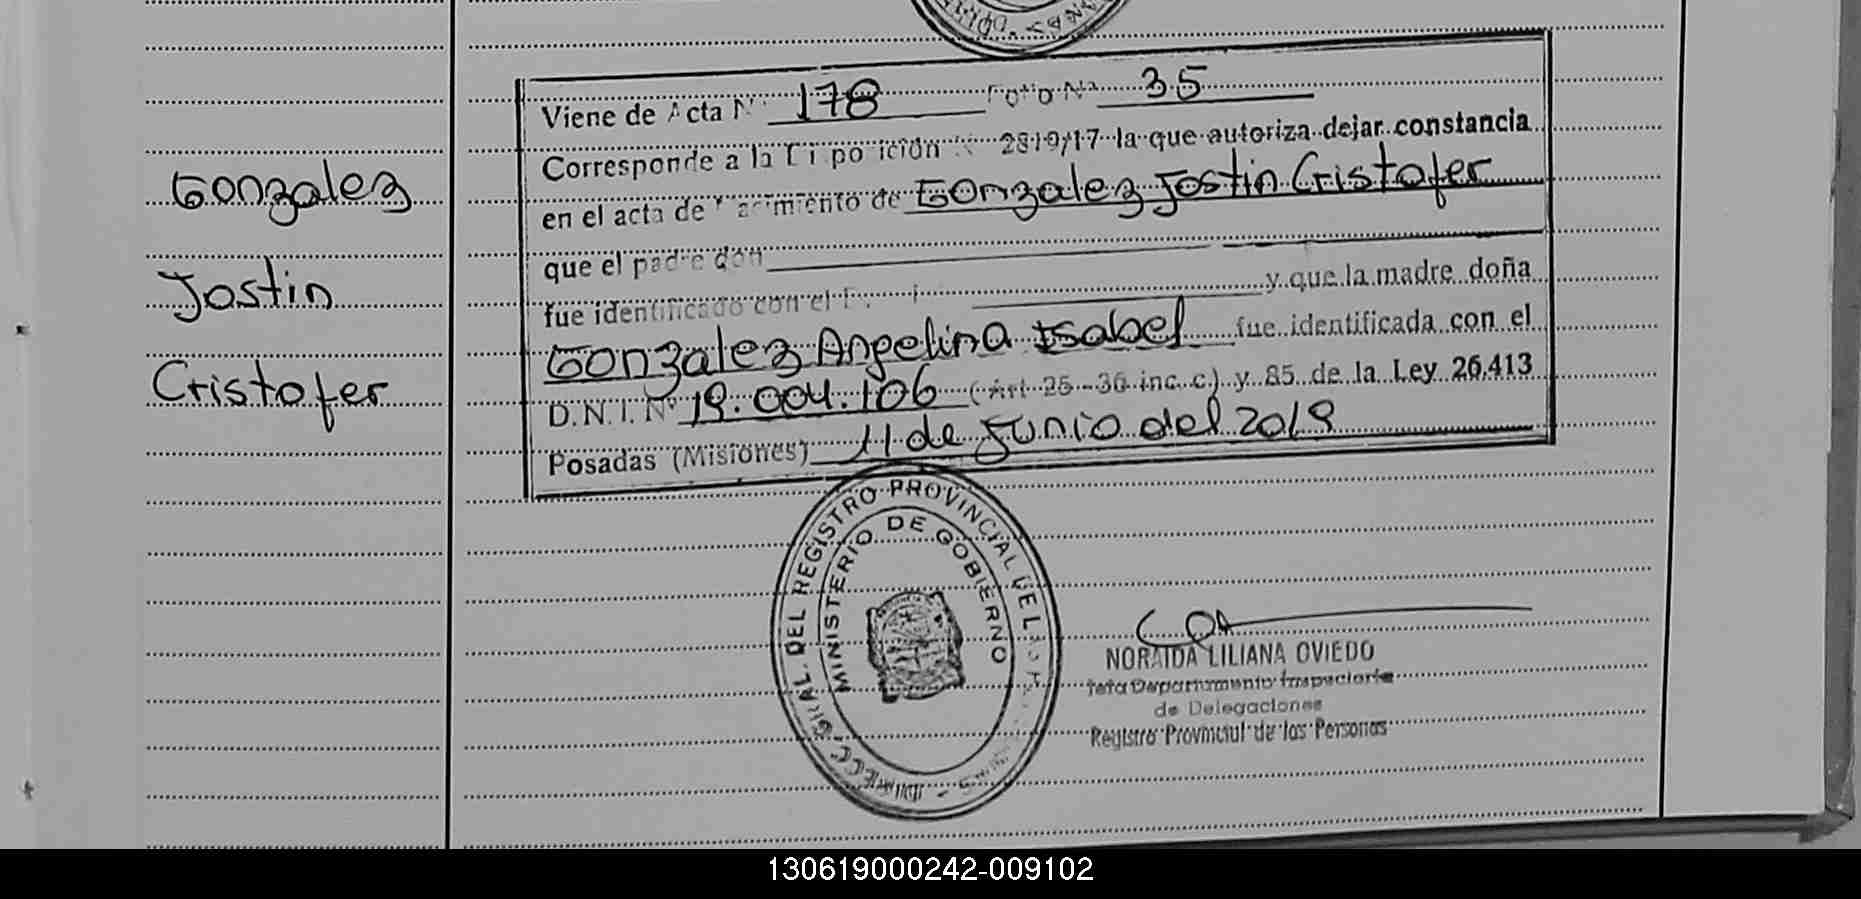 Gonzalez
Jostin
Cristofer
Viene de Acta Nº 178 Folio Nº 35
Corresponde a la Disposición Nº 2819/17 la que autoriza dejar constancia
en el acta de Nacimiento de Gonzalez Jostin Cristofer
que el padre don
fue identificado con el y que la madre doña
Gonzalez Angelina Isabel fue identificada con el
D.N.I. Nº 19.004.106 (Art 25-36 inc. c) y 85 de la Ley 26.413
Posadas (Misiones) 11 de Junio del 2019
REGISTRO PROVINCIAL DE LAS
MINISTERIO DE GOBIERNO
NORAIDA LILIANA OVIEDO
Jefa Departamento Inspectoria
de Delegaciones
Registro Provincial de las Personas
130619000242-009102